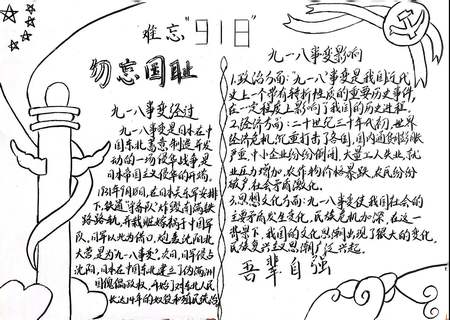 难忘"918"
勿忘国耻
九一八事变经过
九一八事变是日本在中
国东北蓄意制造并发
动的一场侵华战争,是
日本帝国主义侵华的开端。
1931年9月18日,在日本关东军安排
下,铁道"守备队"炸毁南满铁
路路轨,并栽赃嫁祸于中国军
队,日军以此为借口,炮轰沈阳北
大营,是为九一八事变。次日,日军侵占
沈阳,日本在中国东北建立了伪满洲
国傀儡政权,开始了对东北人民
长达14年的奴役和殖民统治
九一八事变影响
1.政治方面:九一八事变是我国近代
史上一个带有转折性质的重要历史事件,
在一定程度上影响了我国的历史进程。
2.经济方面:二十世纪三十年代初,世界
经济危机,沉重打击了各国,国内通货膨胀
严重,中小企业纷纷倒闭,大量工人失业,就
业压力增加,农作物价格暴跌,农民纷纷
破产社会矛盾激化。
3.思想文化方面:九一八事变使我国社会的
主要矛盾发生变化,民族危机加深,在这一
背景下,我国的文化思潮出现了很大的变化,
民族复兴主义思潮广泛兴起。
吾辈自强